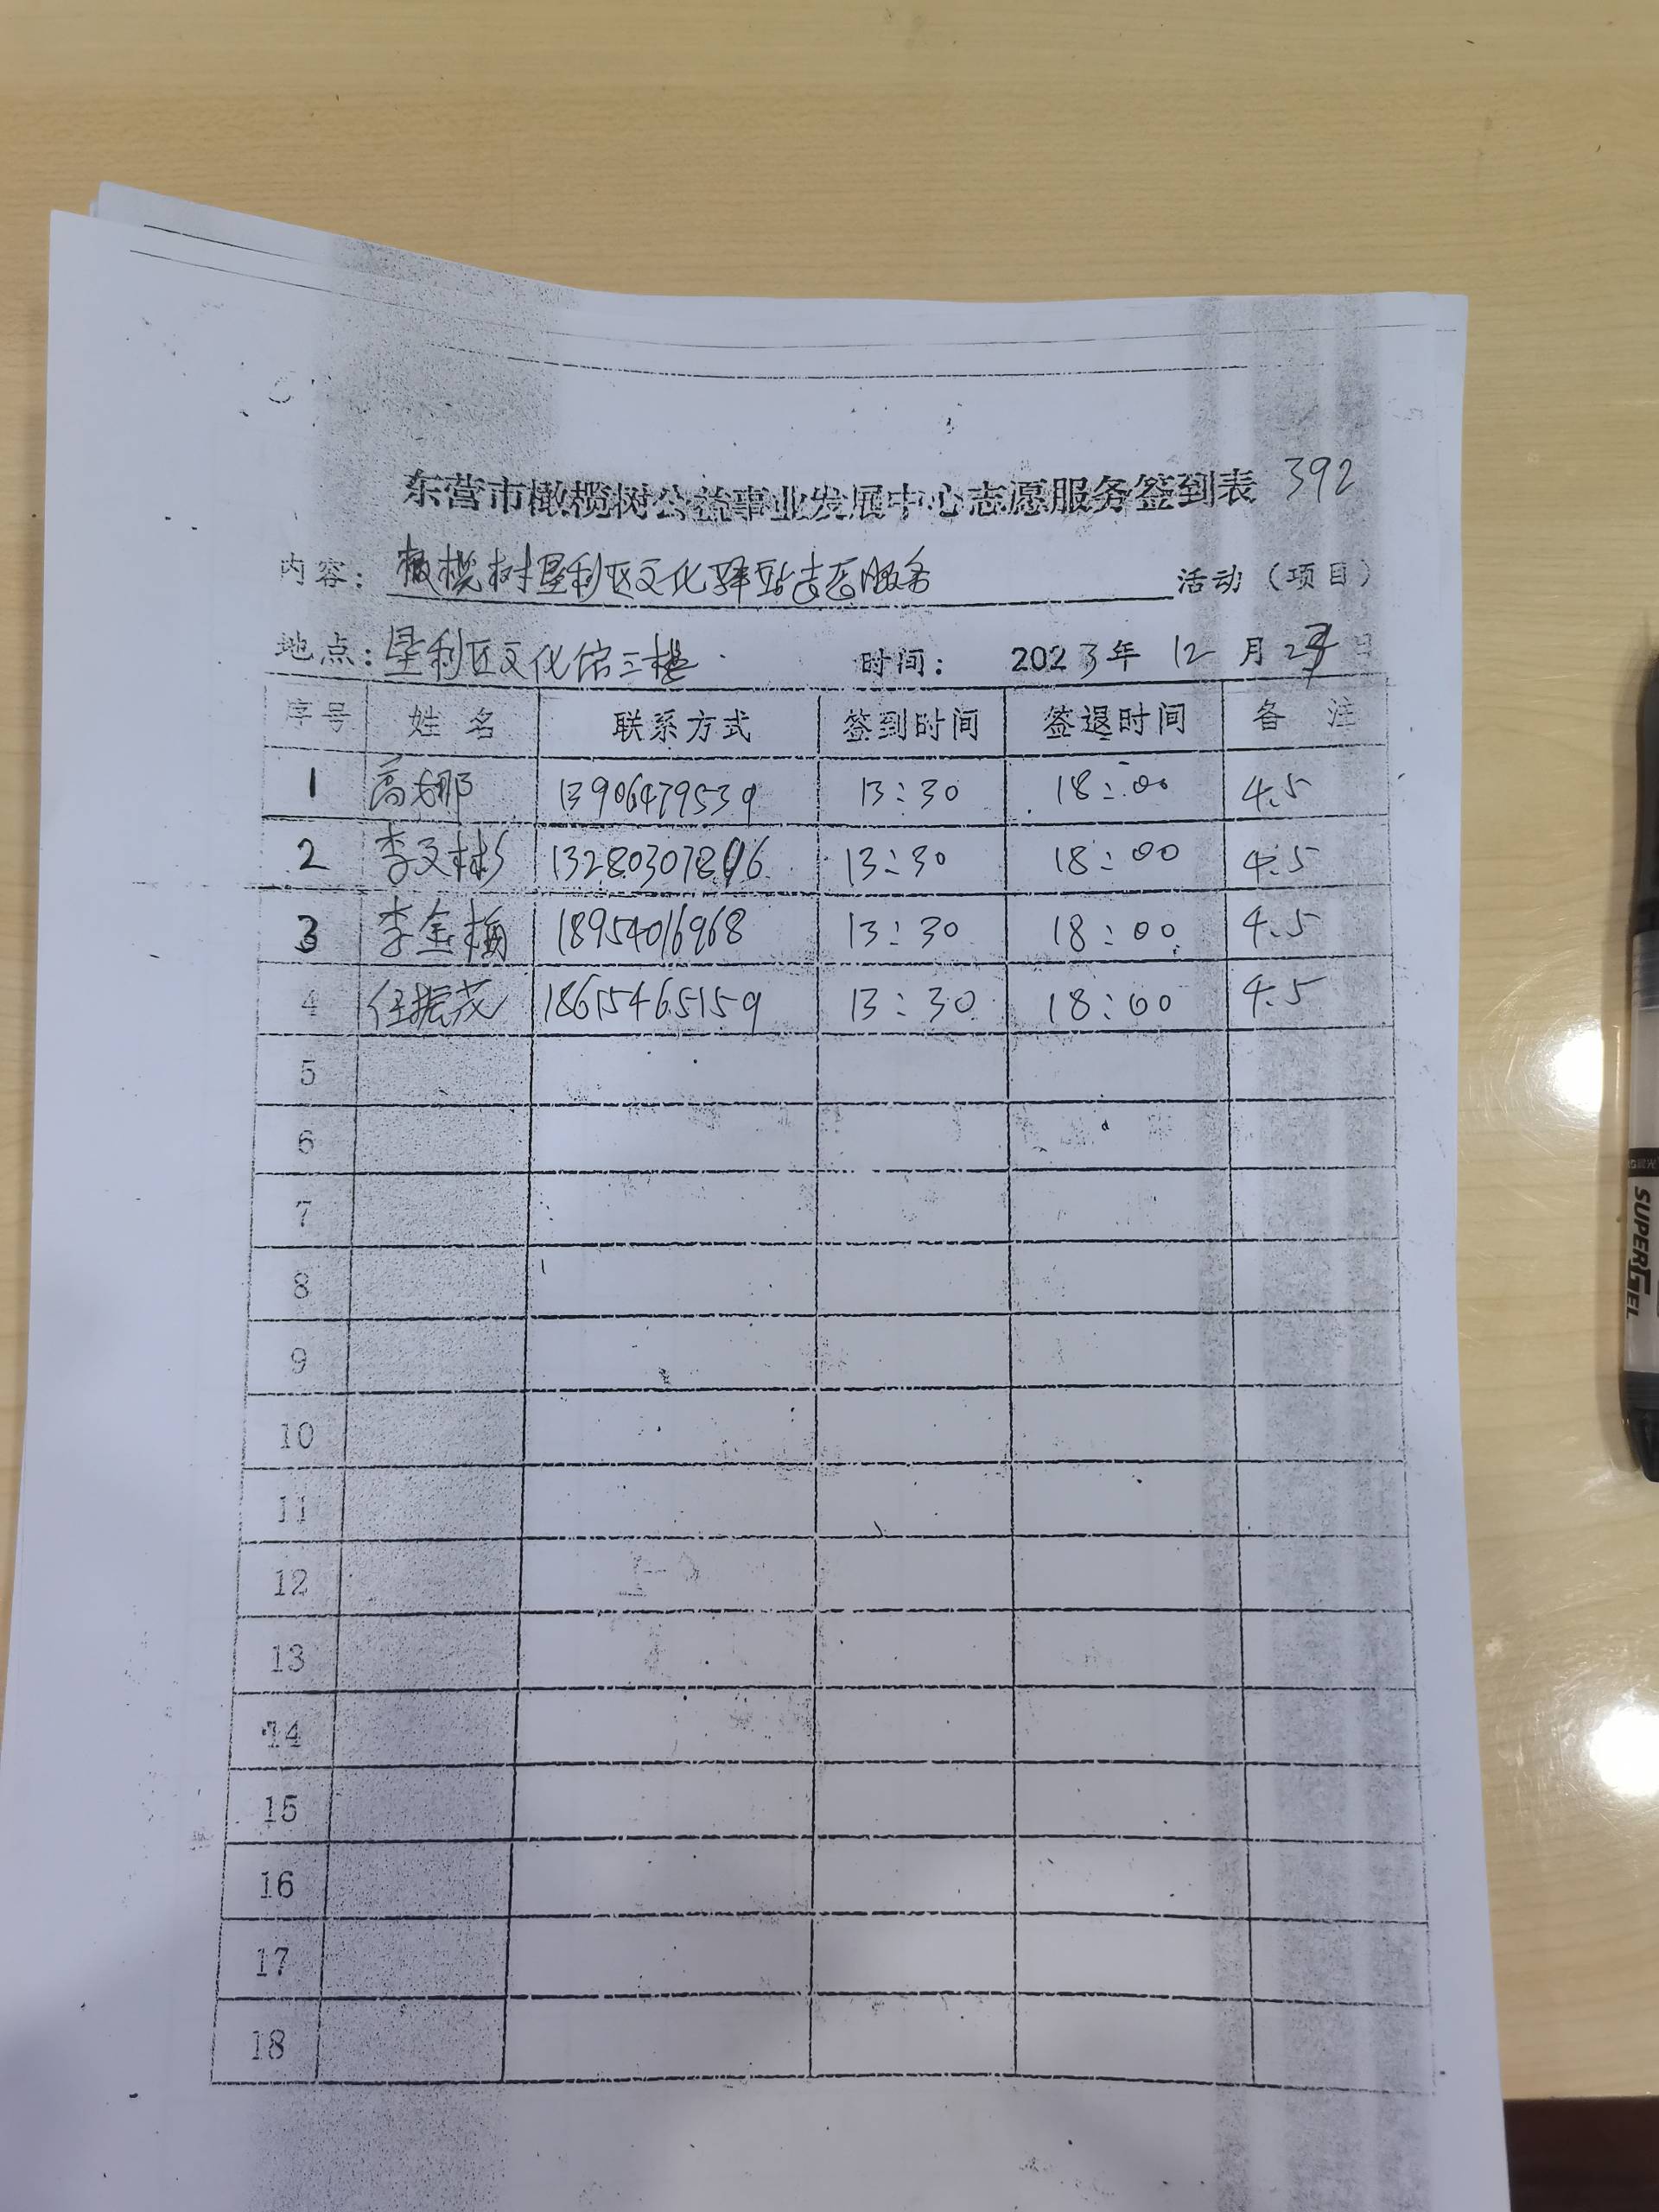 东营市橄榄树公益事业发展中心志愿服务签到表 392
内容: 橄榄树垦利区文化驿站志愿服务 活动（项目）
地点: 垦利区文化馆三楼 时间: 2023年 12 月 日
序号 姓名 联系方式 签到时间 签退时间 备注
1 高娜 13906479539 13:30 18:00 4.5
2 李文彬 132803078 6 13:30 18:00 4.5
3 李金梅 18954016968 13:30 18:00 4.5
4 任振茂 18615465159 13:30 18:00 4.5
5
6
7
8
9
10
11
12
13
14
15
16
17
18
SUPERGEL